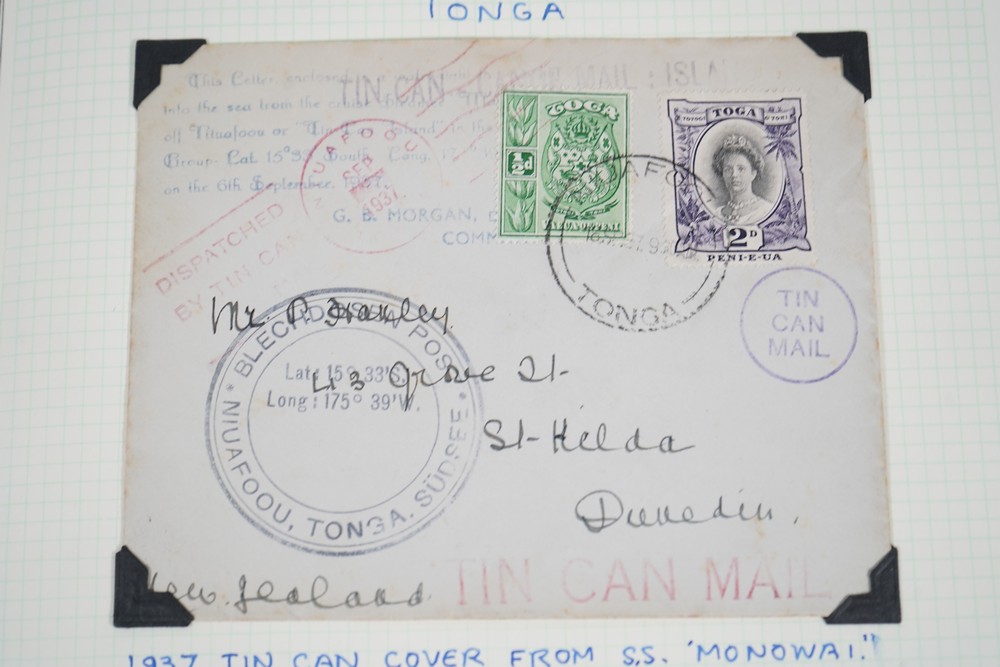 TONGA
This Letter enclosed
into the sea from the
off Niuafoou or "Tin Can Island" in the
Group - Lat. 15°33 South, Long.
on the 6th September, 1937.
G. B. MORGAN,
COMM
TIN CAN MAIL : ISLA
NIUAFOOU
SEP
1937.
DISPATCHED
BY TIN CAN
TOGA
½d
TAU'A'OFE
TOGA
2D
PENI-E-UA
NIUAFOOU
TONGA
TIN
CAN
MAIL
BLECHDOSEN POST
Lat: 15° 33'S.
Long: 175° 39'W.
NIUAFOOU, TONGA. SÜDSEE
Mr. P. Hanley
43 Grove St-
St-Kilda
Dunedin,
New Zealand
TIN CAN MAIL
1937 TIN CAN COVER FROM S.S. "MONOWAI."